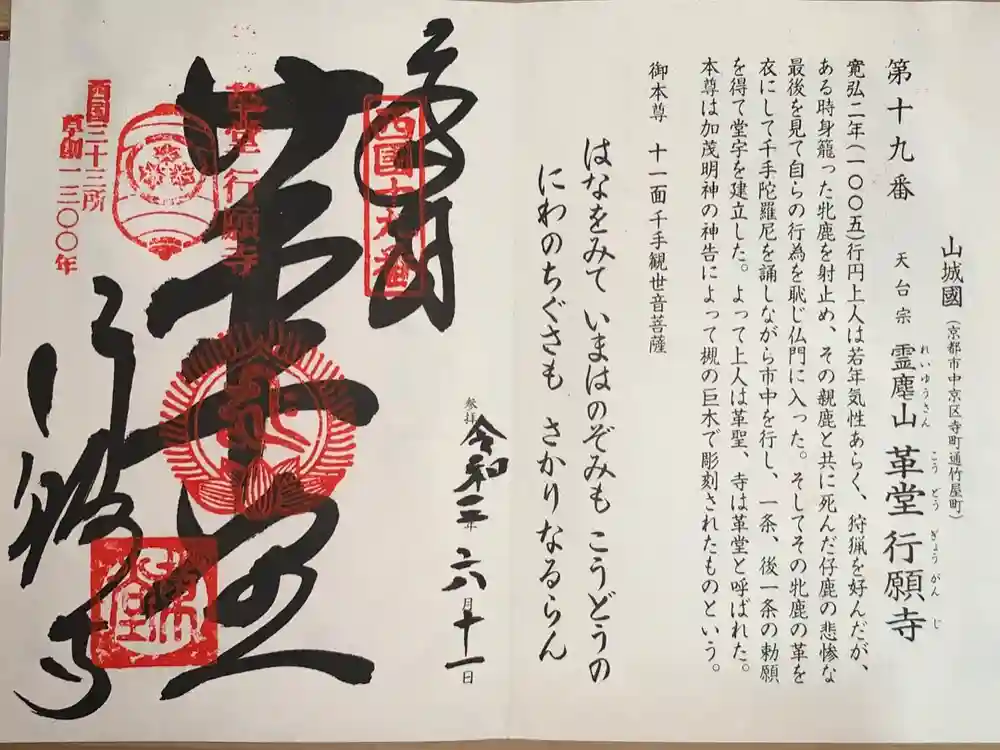 山城國（京都市中京区寺町通竹屋町）
第十九番 天台宗 霊麀山 革堂 行願寺
れいゆうさん こうどう ぎょうがんじ
寛弘二年（一〇〇五）行円上人は若年気性あらく、狩猟を好んだが、
ある時身籠った牝鹿を射止め、その親鹿と共に死んだ仔鹿の悲惨な
最後を見て自らの行為を恥じ仏門に入った。そしてその牝鹿の革を
衣にして千手陀羅尼を誦しながら市中を行し、一条、後一条の勅願
を得て堂宇を建立した。よって上人は革聖、寺は革堂と呼ばれた。
本尊は加茂明神の神告によって槻の巨木で彫刻されたものという。
御本尊 十一面千手観世音菩薩
はなをみて いまはのぞみも こうどうの
にわのちぐさも さかりなるらん
参拝 令和三年 六月十一日
西国十九番
革堂 行願寺
西国三十三所
草創一三〇〇年
行願寺
革堂